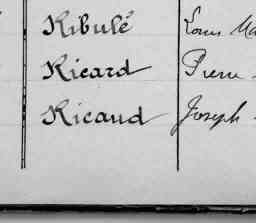 Ribulé Louis Ma
Ricard Pierre
Ricaud Joseph